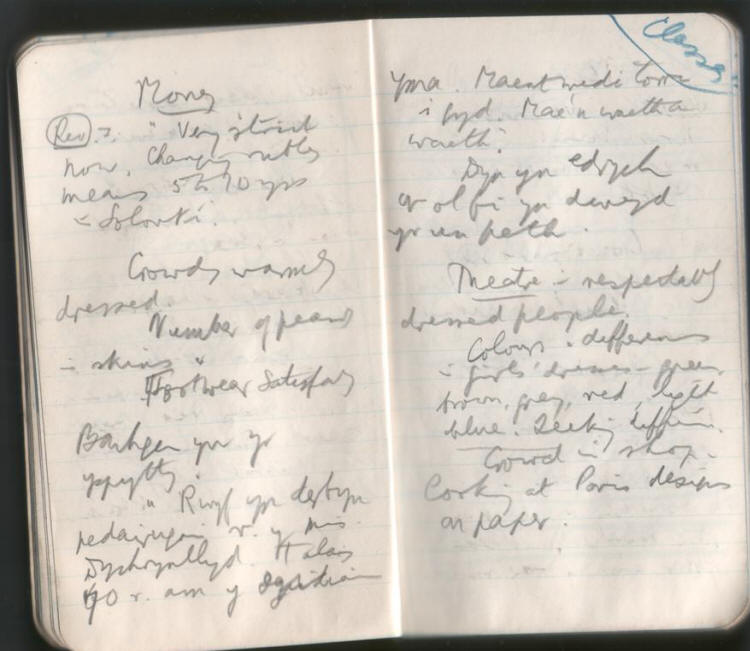 Money
Rev : "Very strict
now. Changing roubles
means 5 to 10 yrs
in Solovki.
Crowds warmly
dressed.
Number of peasants
in skins "
Footwear Satisfactory
Bachgen yn yr
" Rwyf yn derbyn
pedairugain r. y mis.
Dychrynllyd. Talais
40 r. am y sgidiau
Classes
yma. Maent wedi torri
i gyd. Mae'n waeth a
waeth."
Dyn yn edrych
ar ol fi yn dweyd
yr un peth.
Theatre - respectably
dressed people.
Colours. differences
in girls' dresses - green,
brown, grey, red, light
blue. Seeking
Crowd in shop -
Looking at Paris designs
on paper.